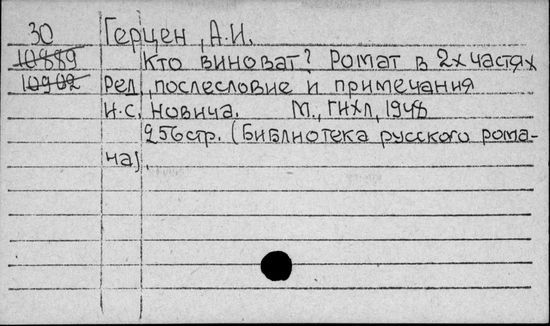 30 Герцен, А.И.
10889 Кто виноват? Ромат в 2х частях
10902 Ред., послесловие и примечания
И.С. Новича. М., ГИХЛ, 1948
256стр. (Библиотека русского рома-
на).